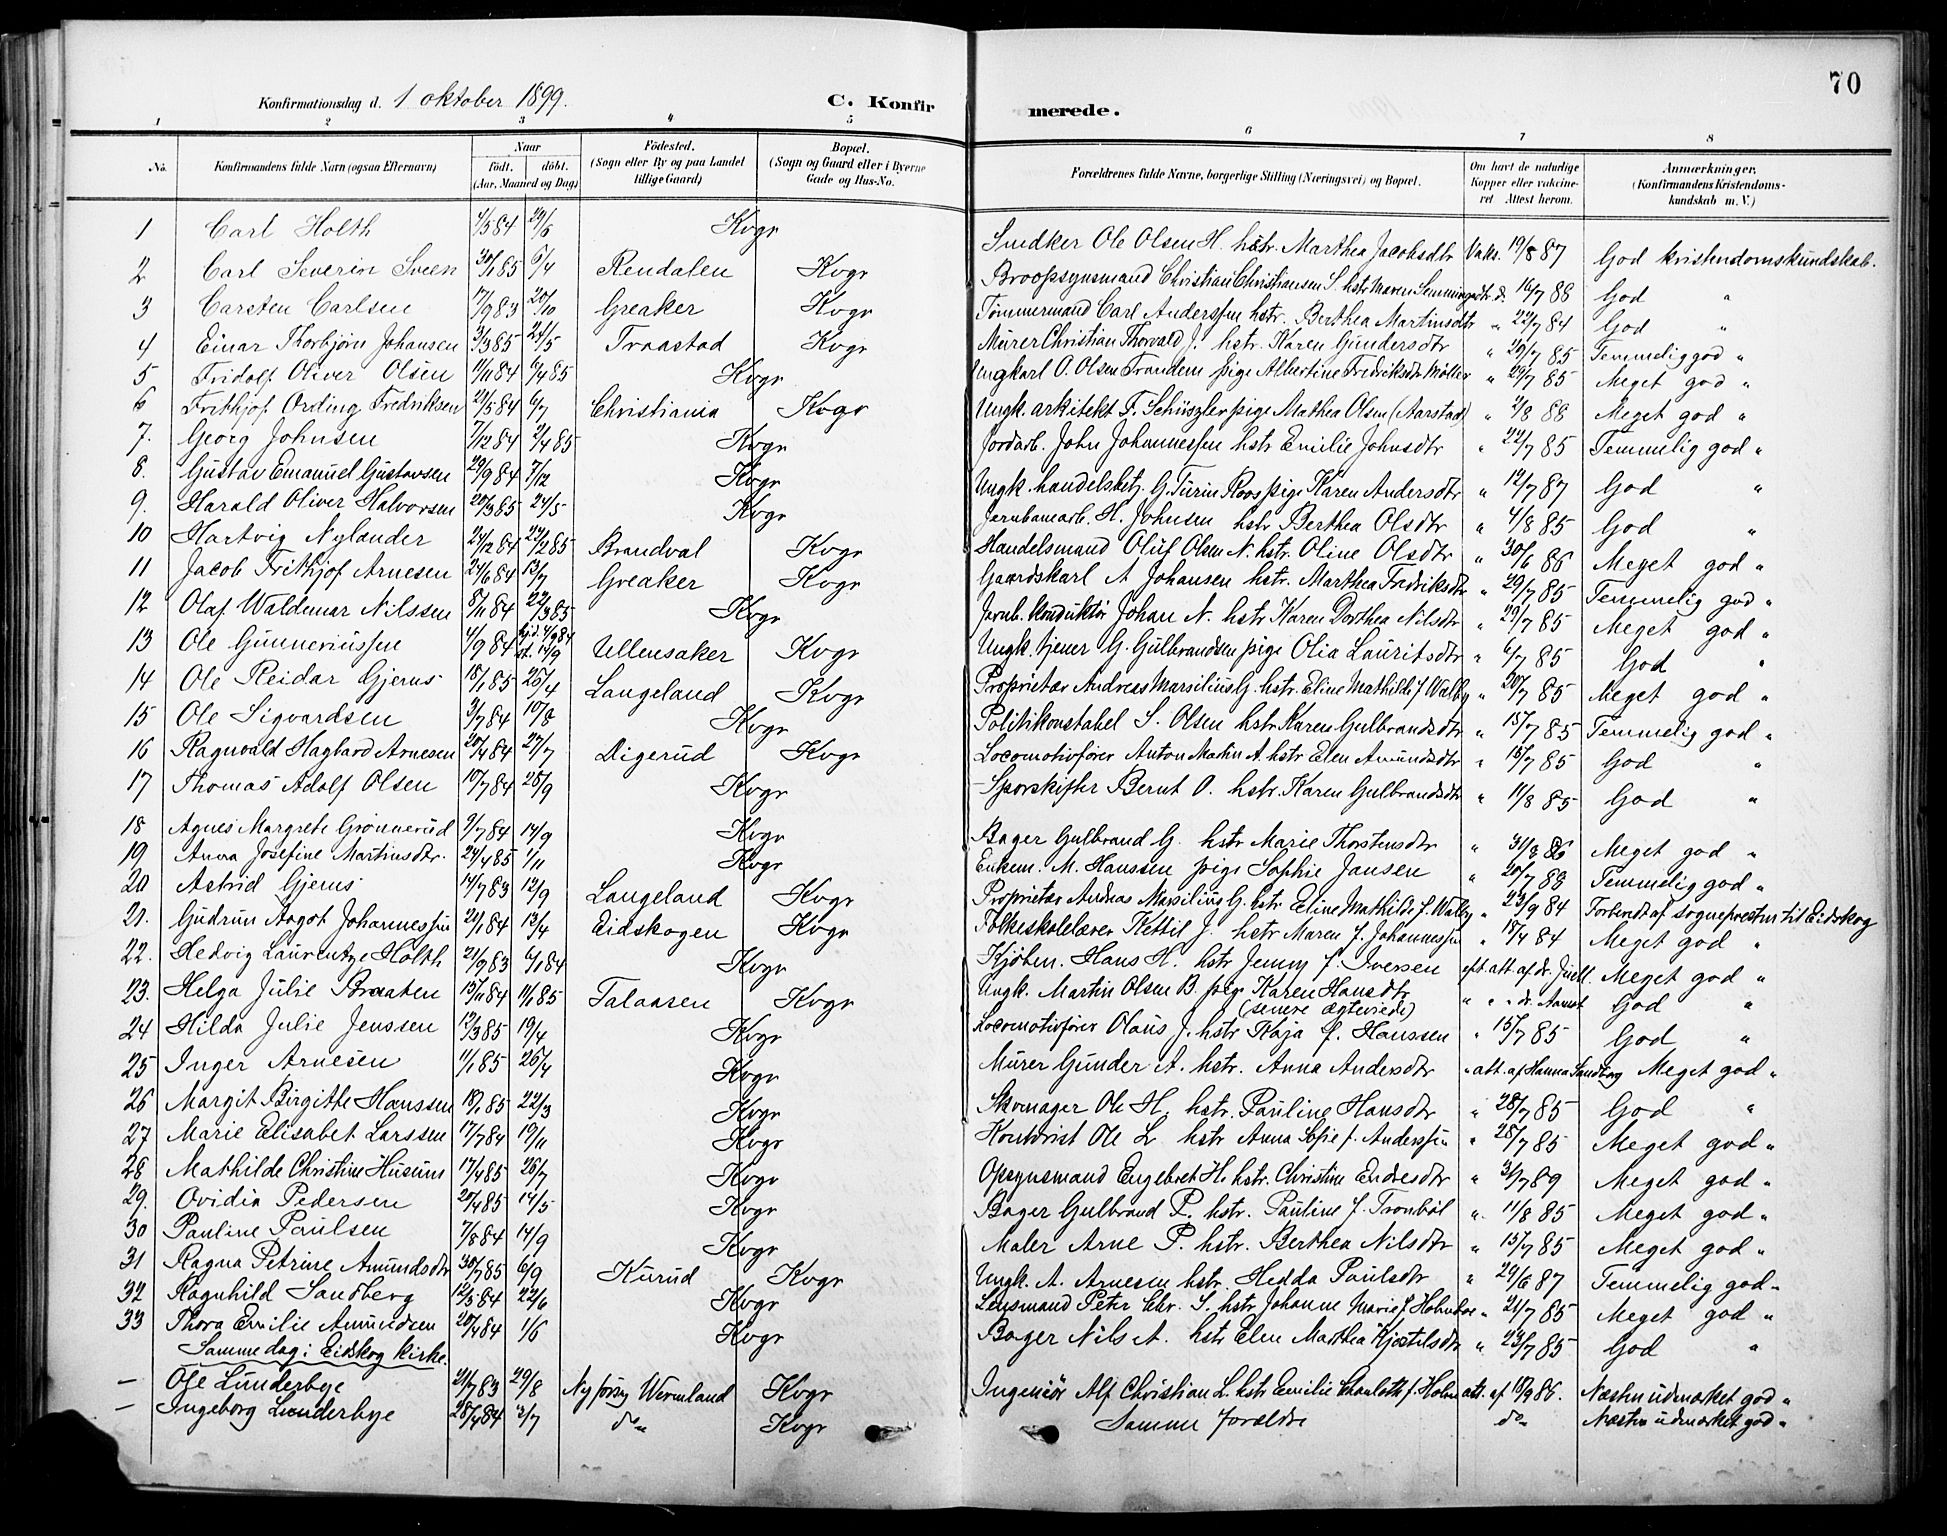 70
Konfirmationsdag d. 1 oktober 1899.
C. Konfirmerede.
1 2 3 4 5 6 7 8
No. Konfirmandens fulde Navn (ogsaa Efternavn) Naar født. døbt. (Aar, Maaned og Dag) Fødested. (Sogn eller By og paa Landet tillige Gaard) Bopæl. (Sogn og Gaard eller i Byerne Gade og Hus-No. Forældrenes fulde Navne, borgerlige Stilling (Næringsvei) og Bopæl. Om havt de naturlige Kopper eller vakcineret. Attest herom. Anmærkninger. (Konfirmandens Kristendomskundskab m. V.)
1 Carl Holth 4/5 84 29/6 Kvgr Snedker Ole Olsen H. hstr. Marthea Jacobsdtr Vaks. 19/8 87 God kristendomskundskab.
2 Carl Severin Sveen 30/1 85 6/4 Rendalen Kvgr Broopsynsmand Christian Christiansen S. hstr Maren Semmingsdtr d. 16/7 88 God "
3 Carsten Carlsen 17/9 83 20/10 Greaker Kvgr Tømmermand Carl Anderssen hstr. Berthea Martinsdtr " 22/7 84 God "
4 Einar Thorbjørn Johansen 3/3 85 24/5 Traastad Kvgr Murer Christian Thorvald J. hstr. Karen Gundersdtr " 20/7 85 Temmelig god "
5 Fridolf Oliver Olsen 11/11 84 6/4 85 Kvgr Ungkarl O. Olsen Trandem pige Albertine Fredriksdtr Møller " 29/7 85 Meget god "
6 Frithjof Ording Fredriksen 29/5 84 6/7 Christiania Kvgr Ungk. arkitekt F. Schüszler pige Mathea Olsen (Aarstad) " 2/8 88 Meget god "
7. Georg Johnsen 7/12 84 2/4 85 Kvgr Jordarb. John Johannessen hstr Emilie Johnsdtr " 22/7 85 Temmelig god "
8. Gustav Emanuel Gustavsen 29/9 84 7/12 Kvgr Ungk. handelsbetj. G. Turin Roos pige Karen Andersdtr " 12/7 87 God "
9. Harald Oliver Halvorsen 20/3 85 24/5 Kvgr Jernbanearb. H. Johnsen hstr Berthea Olsdtr " 4/8 85 God "
10 Hartvig Nylander 24/12 84 22/2 85 Brandval Kvgr Handelsmand Oluf Olsen N. hstr. Oline Olsdtr " 30/6 86 Meget god "
11 Jacob Frithjof Arnesen 24/6 84 13/7 Greaker Kvgr Gaardskarl A Johansen hstr. Marthea Fredriksdtr " 29/7 85 Temmelig god "
12 Olaf Waldemar Nilssen 8/11 84 22/3 85 Kvgr Jernb. konduktør Johan N. hstr Karen Dorthea Nilsdtr " 29/7 85 Meget god "
13 Ole Gunneriussen 4/9 84 hjd. 4/9 84 st. 14/9 Ullensaker Kvgr Ungk. tjener G. Gulbrandsen pige Olia Lauritsdtr " 6/7 85 God "
14 Ole Reidar Gjerus 18/1 85 25/4 Langeland Kvgr Proprietær Andreas Marsilius G. hstr. Eline Mathilde f. Walby " 20/7 85 Meget god "
15 Ole Sigvardsen 3/7 84 10/8 Kvgr Politikonstabel S. Olsen hstr Karen Gulbrandsdtr " 15/7 85 Temmelig god "
16 Ragnvald Hagbard Arnesen 20/4 84 27/7 Digerud Kvgr Locomotivfører Anton Martin A. hstr Elen Amundsdtr " 15/7 85 God "
17 Thomas Adolf Olsen 19/7 84 28/9 Kvgr Sporskifter Bernt O. hstr. Karen Gulbrandsdtr " 11/8 85 God "
18 Agnes Margrete Grønnerud 9/7 84 14/9 Kvgr Bager Gulbrand G. hstr Marie Thorstensdtr " 31/8 86 Meget god "
19 Anna Josefine Martinsdtr. 24/4 85 1/11 Kvgr Enkem. M. Hanssen pige Sophie Jansen " 20/7 88 Temmelig god "
20 Astrid Gjerus 14/7 83 12/9 Langeland Kvgr Proprietær Andreas Marsilius G. hstr Eline Mathilde f. Walby " 23/9 84 Forberedt af sognepresten til Eidskog
21. Gudrun Aagot Johannessen 20/1 84 13/4 Eidskogen Kvgr Folkeskolelærer Kettil J. hstr Maren f. Johannessen " 18/4 84 Meget god "
22. Hedvig Laurentze Holth 21/9 83 6/1 84 Kvgr Kjøbm. Hans H. hstr Jenny f. Iversen eft. att. af dr. Juell. Meget god "
23. Helga Julie Braaten 15/11 84 11/1 85 Talaasen Kvgr Ungk. Martin Olsen B. pige Karen Hansdtr (senere ægteviede) " " " dr. Aamot God "
24 Hilda Julie Jenssen 12/3 85 19/4 Kvgr Locomotivfører Olaus J. hstr Kaja f. Hanssen " 15/7 85 God "
25 Inger Arnesen 11/1 85 26/4 Kvgr Murer Gunder A. hstr. Anna Andersdtr " att. af Hanna Sandberg Meget god "
26 Margit Birgitte Hanssen 18/1 85 22/3 Kvgr Skomager Ole H. hstr. Pauline Hansdtr " 28/7 85 God "
27 Marie Elisabet Larssen 17/7 84 19/11 Kvgr Kontorist Ole L. hstr Anna Sofie f. Anderssen " 28/7 85 Meget god "
28 Mathilde Christine Husum 17/4 85 26/7 Kvgr Opsynsmand Engebret H. hstr. Christine Endresdtr " 31/7 89 Meget god "
29. Ovidia Pedersen 20/4 85 14/5 Kvgr Bager Gulbrand P. hstr. Pauline f. Tronbøl " 11/8 85 Meget god "
30 Pauline Paulsen 7/8 84 14/9 Kvgr Maler Arne P. hstr. Berthea Nilsdtr " 15/7 85 Meget god "
31 Ragna Petrine Amundsdtr 30/7 85 6/9 Kurud Kvgr Ungk. A. Arnesen hstr. Hedda Paulsdtr " 29/6 87 Temmelig god "
32 Ragnhild Sandberg 12/5 84 22/6 Kvgr Lensmand Peter Chr. S. hstr Johanne Marie f. Holmboe " 21/7 85 Meget god "
33 Thora Emilie Amundsen 20/4 84 1/6 Kvgr Bager Nils A. hstr Elen Marthea Kjøstelsdtr " 23/7 85 God "
Samme dag i Eidskog kirke.
— Ole Lunderbye 21/7 83 29/8 Nyforsg Wermland Kvgr Ingeniør Alf Christian L. hstr Emilie Charlotte f. Holm att. af 18/9 86. Næsten udmærket god "
— Ingeborg Lunderbye 28/4 84 3/7 do Kvgr Samme forældre do Næsten udmærket god "